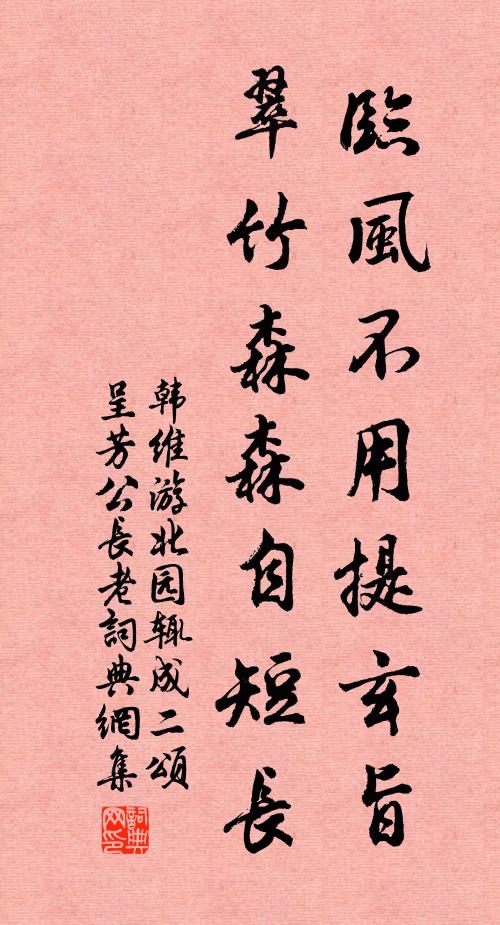 臨風不用提玄旨
翠竹森森自短長
韩维游北园辄成二頌
呈芳公長老詞典網集
詞典网印